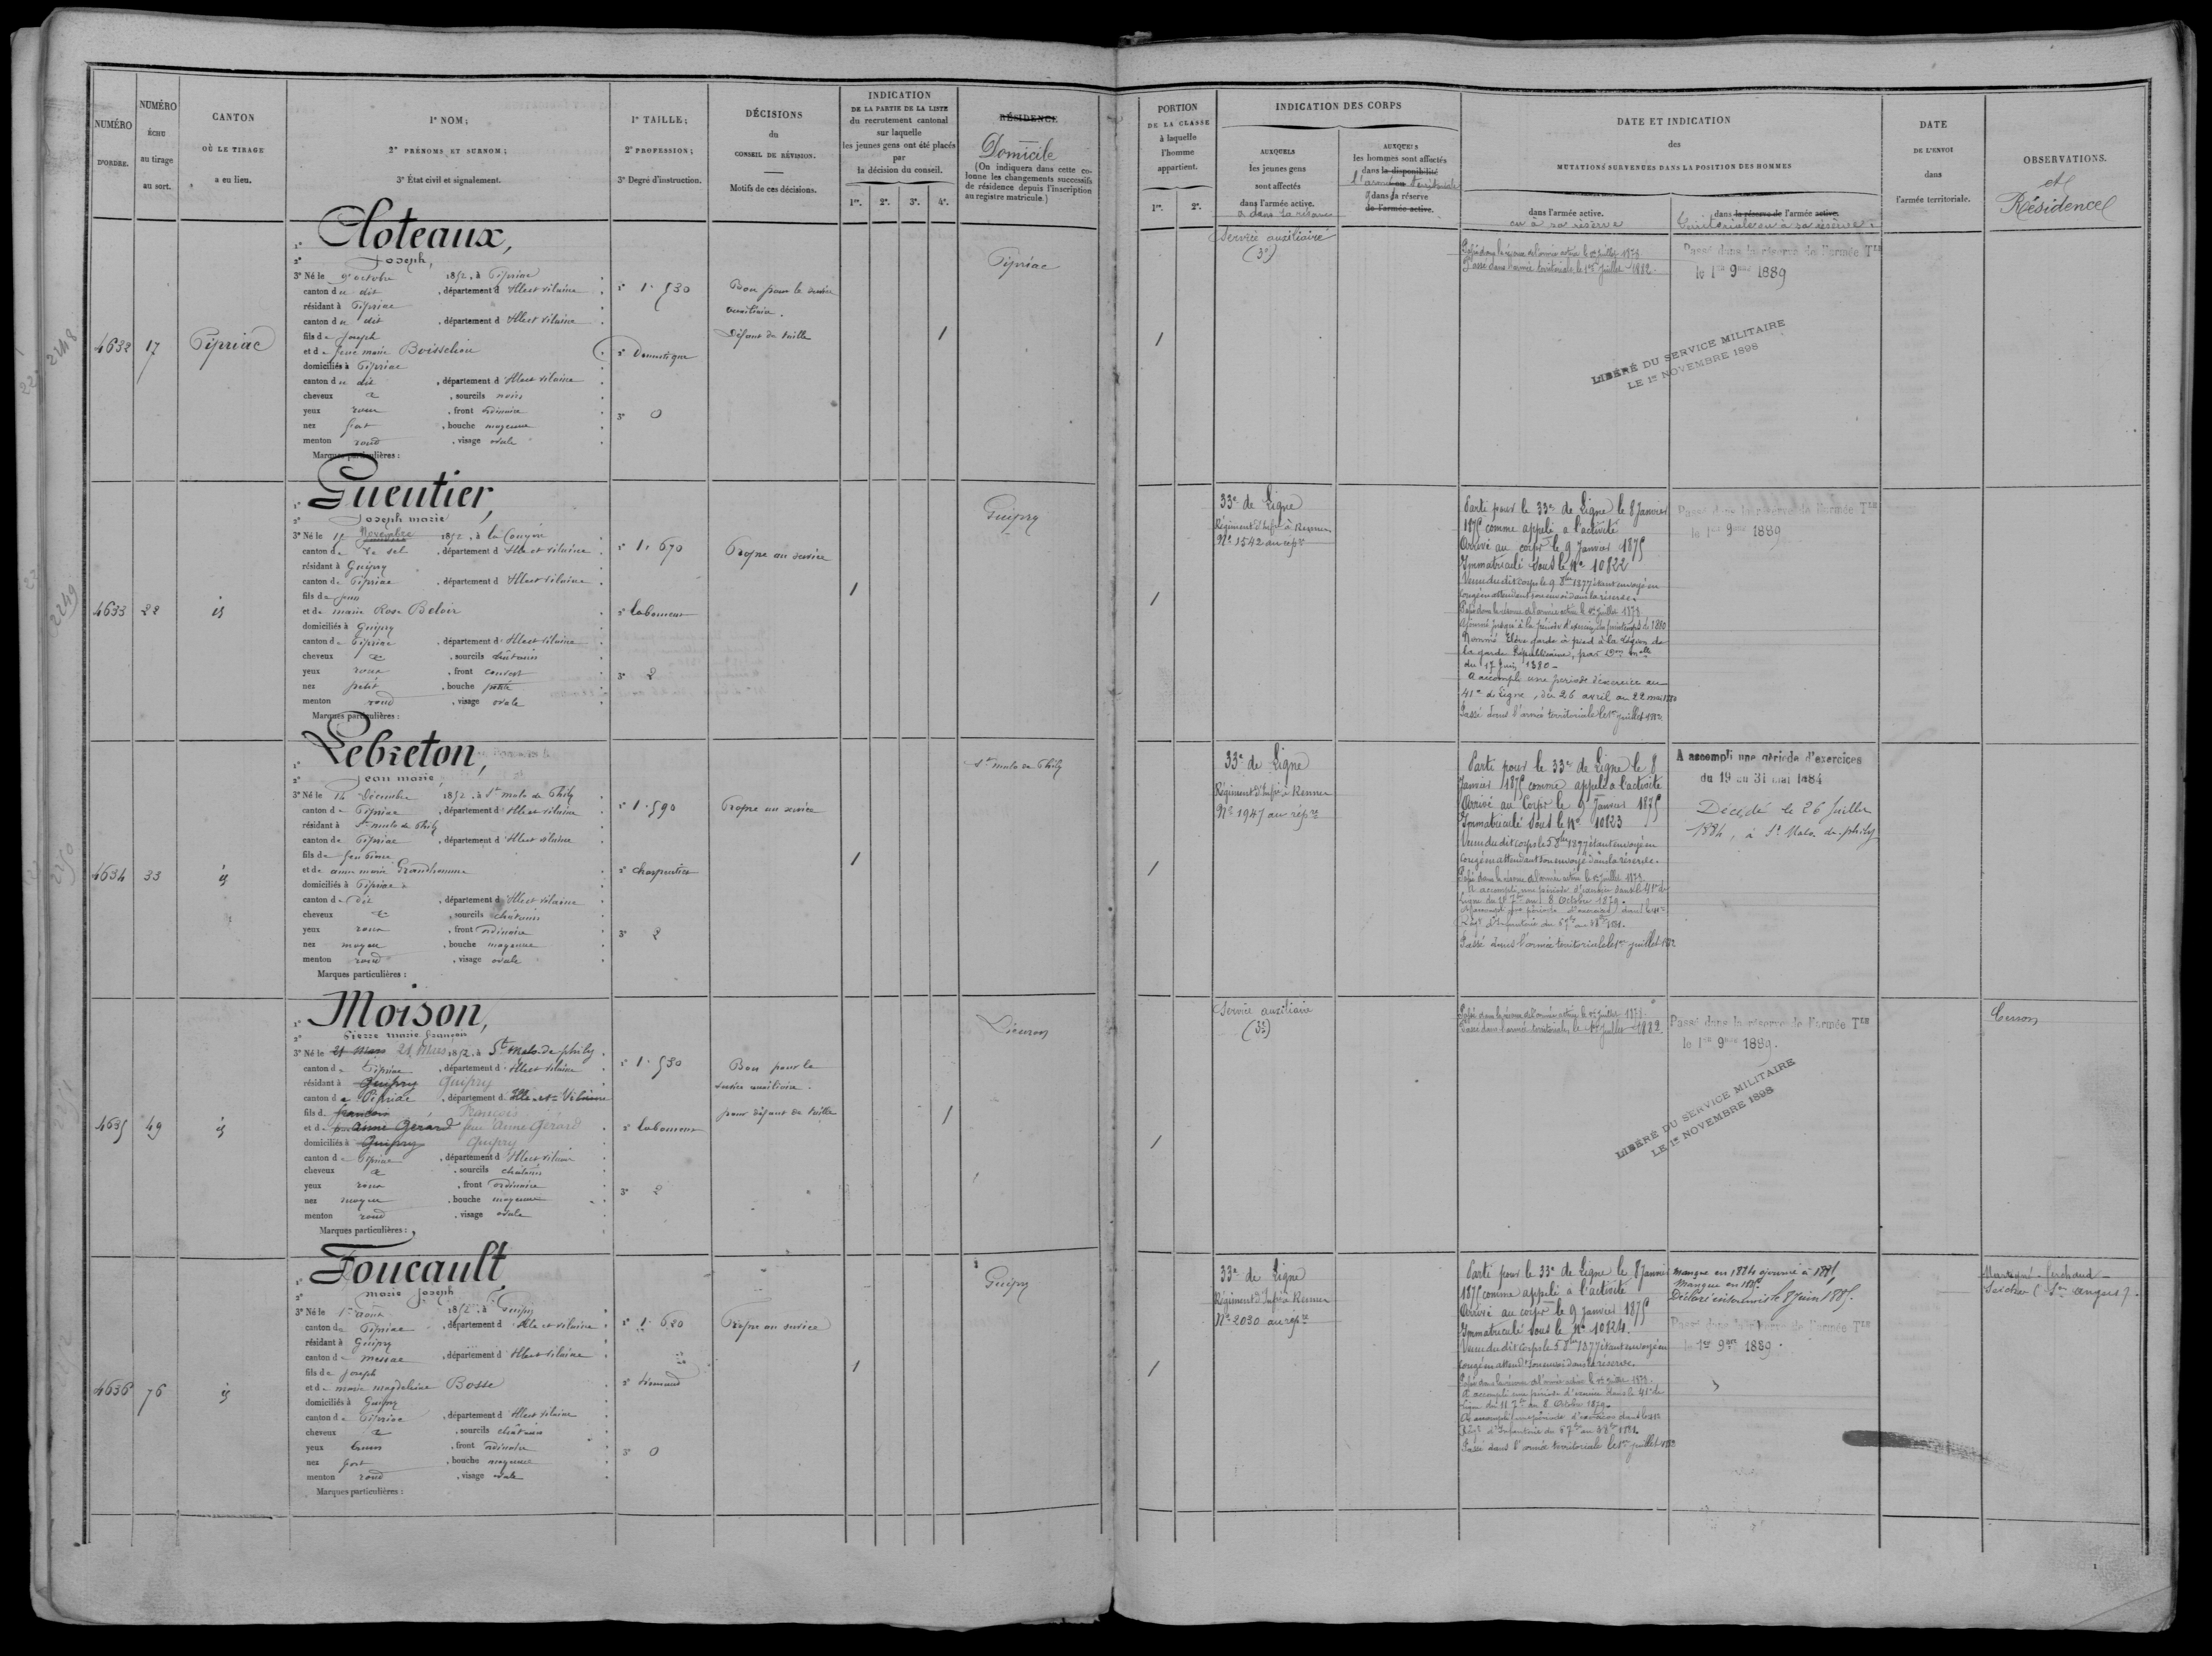 NUMÉRO
D'ORDRE.
NUMÉRO
ÉCHU
au tirage
au sort.
CANTON
OÙ LE TIRAGE
a eu lieu.
1° NOM;
2° PRÉNOMS ET SURNOM;
3° État civil et signalement.
1° TAILLE;
2° PROFESSION;
3° Degré d'instruction.
DÉCISIONS
du
CONSEIL DE RÉVISION.
Motifs de ces décisions.
INDICATION
DE LA PARTIE DE LA LISTE
du recrutement cantonal
sur laquelle
les jeunes gens ont été placés
par
la décision du conseil.
1re. 2e. 3e. 4e.
RÉSIDENCE
Domicile
(On indiquera dans cette co-
lonne les changements successifs
de résidence depuis l'inscription
au registre matricule.)
PORTION
DE LA CLASSE
à laquelle
l'homme
appartient.
1re. 2e.
INDICATION DES CORPS
AUXQUELS
les jeunes gens
sont affectés
dans l'armée active.
et dans la réserve
AUXQUELS
les hommes sont affectés
dans la disponibilité
l'armée territoriale
dans la réserve
de l'armée active.
DATE ET INDICATION
des
MUTATIONS SURVENUES DANS LA POSITION DES HOMMES
dans l'armée active.
ou à sa réserve
dans la réserve de l'armée active.
territoriale ou à sa réserve.
DATE
DE L'ENVOI
dans
l'armée territoriale.
OBSERVATIONS.
et
Résidence
4632
17
Pipriac
1° Cloteaux,
2° Joseph,
3° Né le 9 octobre 1852, à Pipriac
canton du dit, département d'Ille et Vilaine
résidant à Pipriac
canton du dit, département d'Ille et Vilaine
fils de Joseph
et de Jeanne marie
domiciliés à Pipriac
canton du dit, département d'Ille et Vilaine
cheveux et, sourcils noirs
yeux roux, front ordinaire
nez fort, bouche moyenne
menton rond, visage ovale
Marques particulières :
1° 1.530
2° Domestique
3° 0
Bon pour le service
auxiliaire.
Défaut de taille
1
Pipriac
1
Service auxiliaire
(3e)
Passé dans la réserve de l'armée active le 1er Juillet 1878
Passé dans l'armée territoriale le 1er Juillet 1882.
Passé dans la réserve de l'armée Tle
le 1er 9bre 1889
LIBÉRÉ DU SERVICE MILITAIRE
LE 1er NOVEMBRE 1898
4633
22
id
1° Gueutier,
2° Joseph marie
3° Né le 12 Novembre 1852, à la Couyère
canton de Le sel, département d'Ille et Vilaine
résidant à Guipry
canton de Pipriac, département d'Ille et Vilaine
fils de
et de marie Rose Beloir
domiciliés à Guipry
canton de Pipriac, département d'Ille et Vilaine
cheveux et, sourcils châtains
yeux roux, front couvert
nez petit, bouche petite
menton rond, visage ovale
Marques particulières :
1° 1.670
2° laboureur
3° 2
Propre au service
1
Guipry
1
33e de Ligne
Régiment d'Infie à Rennes
No 1542 au répre
Parti pour le 33e de Ligne le 8 Janvier
1875 comme appelé à l'activité
Arrivé au corps le 9 Janvier 1875
Immatriculé sous le No 10822
Venu du dit corps le 9 8bre 1877 étant envoyé en
congé en attendant son envoi dans la réserve.
Passé dans la réserve de l'armée active le 1er Juillet 1878
Ajourné jusqu'à la période d'exercice du printemps de 1880
Nommé Elève garde à pied à la Légion de
la garde Républicaine, par Don Mlle
du 17 Juin 1880 -
A accompli une période d'exercice au
41e de Ligne, du 26 avril au 22 mai 1880
Passé dans l'armée territoriale le 1er juillet 1882
Passé dans la réserve de l'armée Tle
le 1er 9bre 1889
4634
33
id
1° Lebreton,
2° Jean marie
3° Né le 14 Décembre 1852, à St malo de Phily
canton de Pipriac, département d'Ille et Vilaine
résidant à St malo de Phily
canton de Pipriac, département d'Ille et Vilaine
fils de feu Pierre
et de anne marie Grandhomme
domiciliés à Pipriac
canton de Dit, département d'Ille et Vilaine
cheveux et, sourcils châtains
yeux roux, front ordinaire
nez moyen, bouche moyenne
menton rond, visage ovale
Marques particulières :
1° 1.590
2° charpentier
3° 2
Propre au service
1
St malo de Phily
1
33e de Ligne
Régiment d'Infie à Rennes
No 1947 au répre
Parti pour le 33e de Ligne le 8
Janvier 1875 comme appelé à l'activité
Arrivé au Corps le 9 Janvier 1875
Immatriculé sous le No 10823
Venu du dit corps le 5 8bre 1877 étant envoyé en
congé en attendant son envoyé dans la réserve.
Passé dans la réserve de l'armée active le 1er Juillet 1878
A accompli une période d'exercice dans le 41e de
Ligne du 11 7bre au 8 Octobre 1879.
A accompli une période d'exercices dans le 41e
Régt d'Infanterie du 5 7bre au 1881.
Passé dans l'armée territoriale le 1er juillet 1882
A accompli une période d'exercices
du 19 au 31 mai 1884
Décédé le 26 Juillet
1884, à St Malo de phily
4635
49
id
1° Moison,
2° Pierre marie françois
3° Né le 21 Mars 21 Mars 1852, à St Malo de phily
canton de Pipriac, département d'Ille et Vilaine
résidant à Guipry Guipry
canton de Pipriac, département d'Ille-et-Vilaine
fils de françois François
et de feue Anne Gérard feue Anne Gérard
domiciliés à Guipry Guipry
canton de Pipriac, département d'Ille et Vilaine
cheveux et, sourcils châtains
yeux roux, front ordinaire
nez moyen, bouche moyenne
menton rond, visage ovale
Marques particulières :
1° 1.530
2° laboureur
3° 2
Bon pour le
service auxiliaire.
pour défaut de taille
1
1
Service auxiliaire
(3e)
Passé dans la réserve de l'armée active le 1er Juillet 1878
Passé dans l'armée territoriale, le 1er Juillet 1882
Passé dans la réserve de l'armée Tle
le 1er 9bre 1889.
LIBÉRÉ DU SERVICE MILITAIRE
LE 1er NOVEMBRE 1898
4636
76
id
1° Foucault
2° marie Joseph
3° Né le 1er août 1852, à Guipry
canton de Pipriac, département d'Ille et Vilaine
résidant à Guipry
canton de messac, département d'Ille et Vilaine
fils de Joseph
et de marie magdeleine Bosse
domiciliés à Guipry
canton de Pipriac, département d'Ille et Vilaine
cheveux et, sourcils châtains
yeux bruns, front ordinaire
nez fort, bouche moyenne
menton rond, visage ovale
Marques particulières :
1° 1.620
2°
3° 0
Propre au service
1
Guipry
1
33e de Ligne
Régiment d'Infie à Rennes
No 2030 au répre
Parti pour le 33e de Ligne le 8 Janvier
1875 comme appelé à l'activité
Arrivé au corps le 9 janvier 1875
Immatriculé sous le No 10824.
Venu du dit Corps le 5 8bre 1877 étant envoyé en
congé en attendt son envoi dans la réserve.
Passé dans la réserve de l'armée active le 1er Juillet 1878.
A accompli une période d'exercice dans le 41e de
Ligne du 11 7bre au 8 Octobre 1879.
A accompli une période d'exercices dans le 41e
Régt d'Infanterie du 5 7bre au 1881.
Passé dans l'armée territoriale le 1er juillet 1882
Manque en 1884 ajourné à 1885
Manque en 1885
Déclaré insoumis le 8 Juin 1885.
Passé dans la réserve de l'armée Tle
le 1er 9bre 1889.